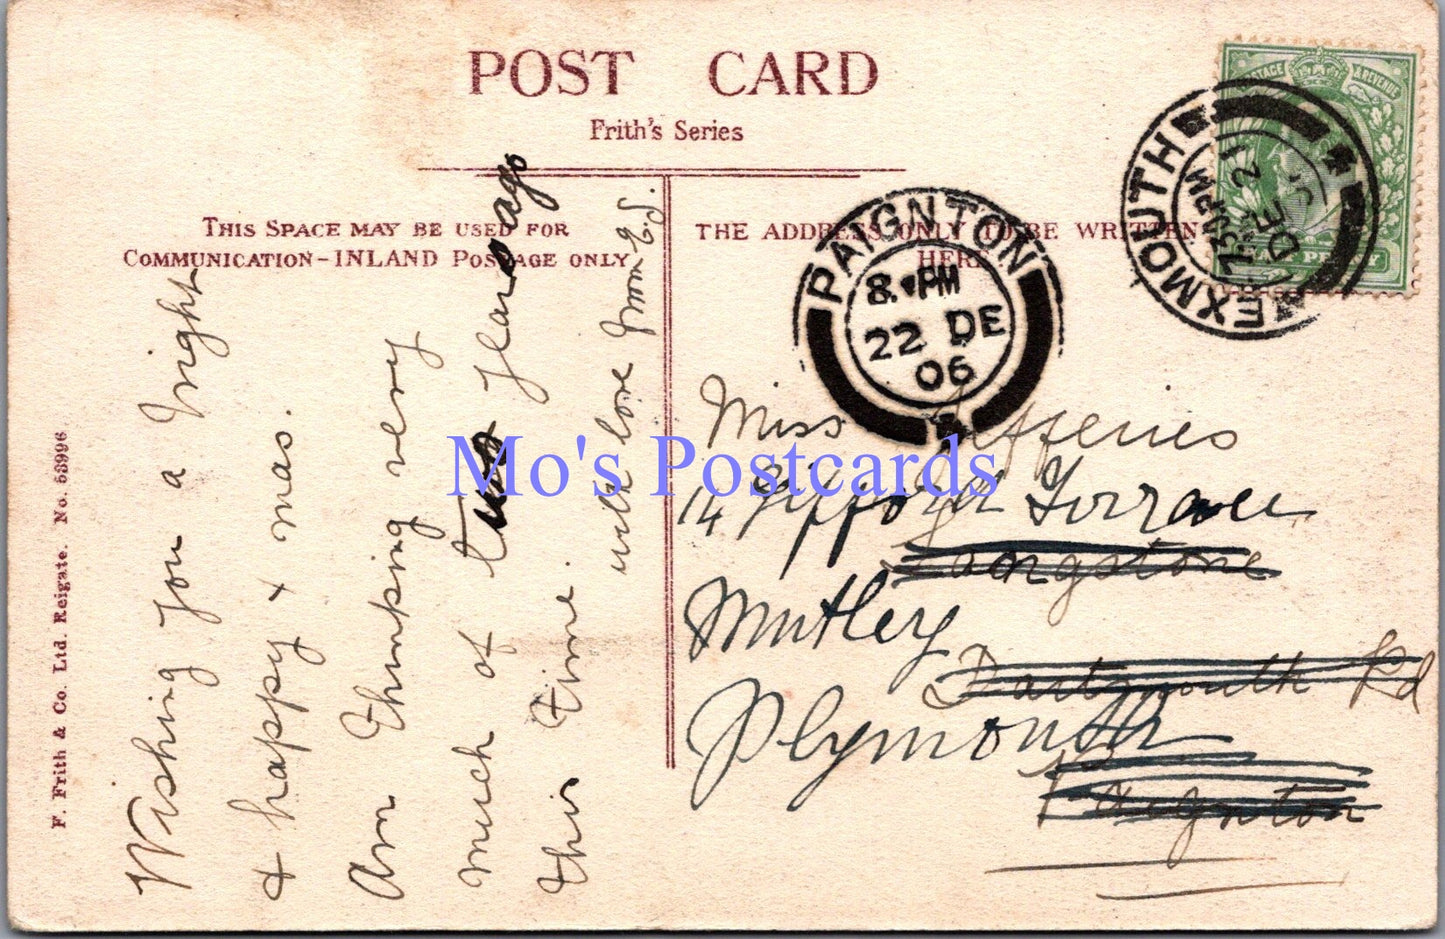 POST CARD
Frith's Series
THIS SPACE MAY BE USED FOR
COMMUNICATION-INLAND POSTAGE ONLY
THE ADDRESS ONLY TO BE WRITTEN
HERE
Wishing you a bright
& happy xmas.
Am thinking very
much of two years ago
this time.
with love from E.J.
Miss Jefferies
14 Gifford Terrace
Longstone
Mutley
Dartmouth Rd
Plymouth
Paignton
PAIGNTON
8. PM
22 DE
06
EXMOUTH
7.30 PM
DE 21
POSTAGE & REVENUE
F. Frith & Co. Ltd. Reigate. No. 53996
Mo's Postcards